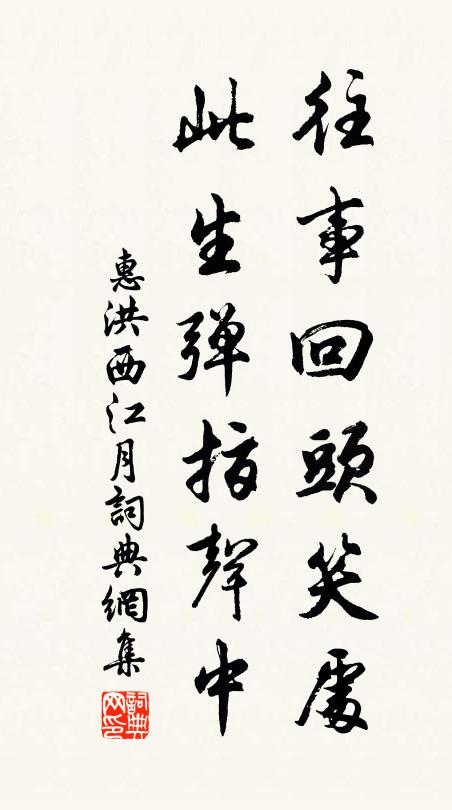 往事回頭笑處
此生彈指聲中
惠洪西江月詞典網集
詞典网印